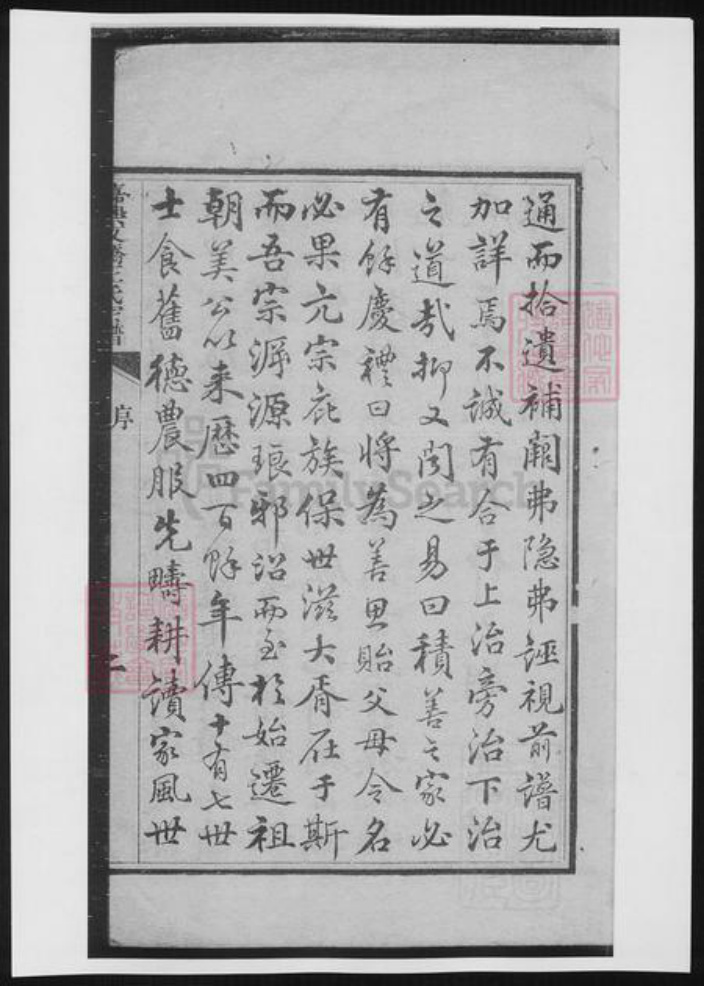 通而拾遺補闕弗隐弗誣視前譜尤
加詳焉不誠有合于上治旁治下治
之道哉抑又闻之易曰積善之家必
有餘慶禮曰将為善思貽父母令名
必果亢宗庇族保世滋大胥在于斯
而吾宗派源琅邪诏而至於始遷祖
朝美公以来歴四百餘年傳十有七世
士食舊德農服先疇耕讀家風世
序
二
FamilySearch